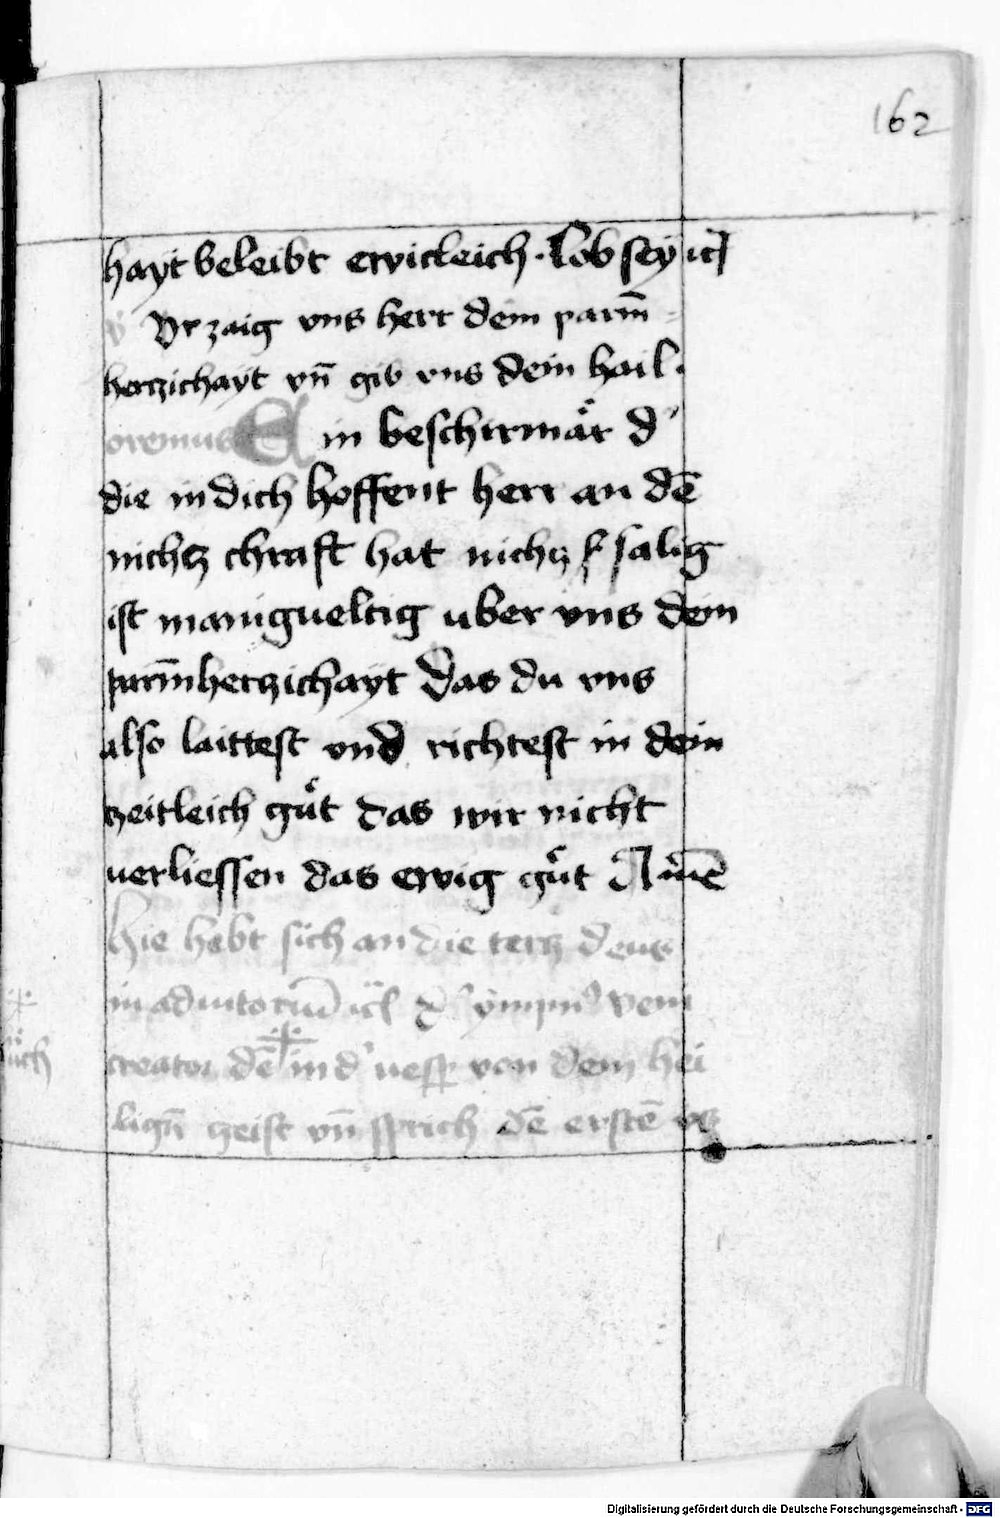 162
hayt beleibt ewicleich · lob sey ic
v̈ Vrzaig vns herr dein parm̄
herczichayt vn̄ gib vns dein hail ·
oremus Ein beschirmaͤr d'
die in dich hoffent herr an dē
nichtz chraft hat nichtz salig
ist manigueltig uber vns dein
parm̄herczichayt Das du vns
also laittest vnd richtest in dein
zeitleich guͤt das wir nicht
verliessen das ewig guͤt Amē
Hie hebt sich an die tertz deus
in adiutoriū ympn9 veni
creator dē in d' uesp von dem hei
lign̄ geist vn̄ sprich dē erstē vs
Digitalisierung gefördert durch die Deutsche Forschungsgemeinschaft - DFG